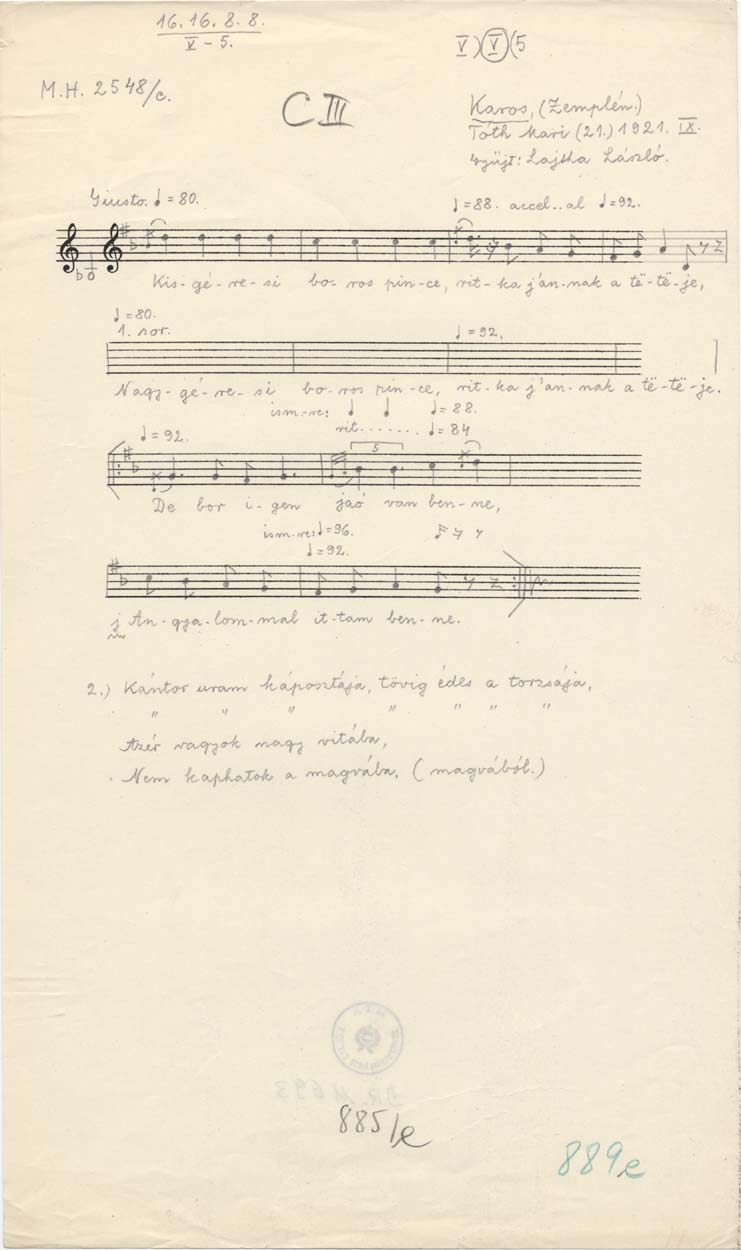 16. 16. 8. 8.
V - 5.
V) V (5
M.H. 2548/c.
C III
Karos, (Zemplén.)
Tóth Mari (21.) 1921. IX.
Gyűjt: Lajtha László.
Giusto. ♩ = 80.
♩ = 88. accel.. al ♩ = 92.
Kis-gé-re-si bo-ros pin-ce, rit-ka j'an-nak a të-të-je,
♩ = 80.
1. sor.
♩ = 92.
Nagy-gé-re-si bo-ros pin-ce, rit-ka j'an-nak a të-të-je.
ism.-re: ♩ ♩ ♩ = 88.
rit....... ♩ = 84
♩ = 92.
5
De bor i-gen jaó van ben-ne,
ism.-re: ♩ = 96.
♩ = 92.
j An-gya-lom-mal it-tam ben-ne.
2.) Kántor uram káposztája, tövig édes a torzsája,
" " " " " " "
Azér vagyok nagy vitába,
Nem kaphatok a magvába. (magvából.)
885/e
889e